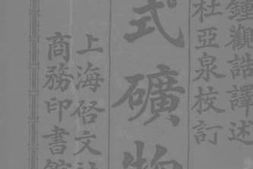 鍾觀誥譯述
杜亞泉校訂
式礦物
上海啓文社
商務印書館